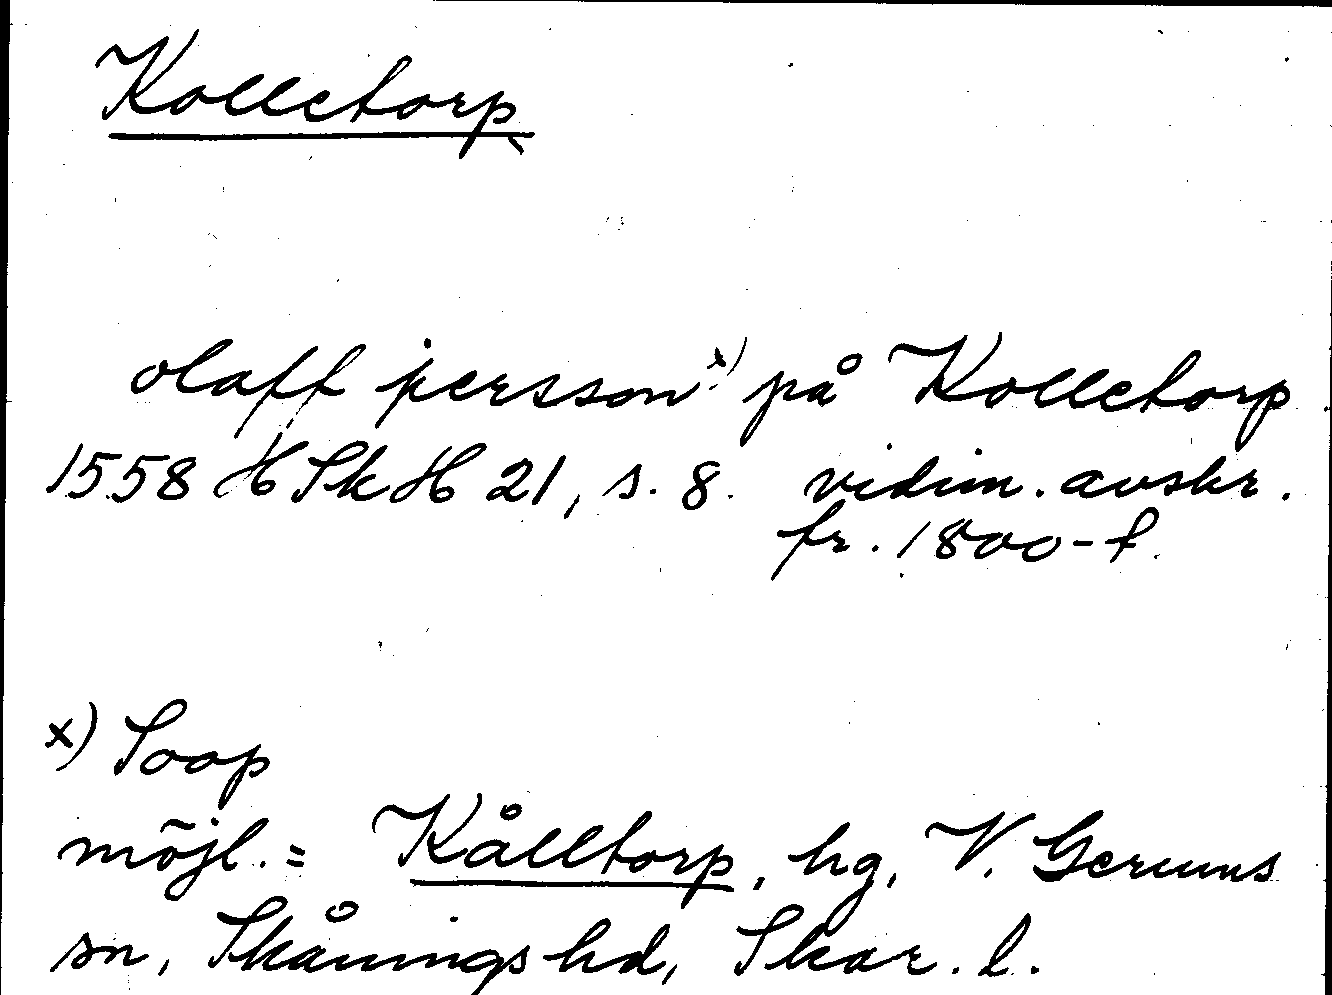 Kolletorp
olaff persson x) på Kolletorp
1558 HSkH 21, s. 8. vidim. avskr.
fr. 1800-t.
x) Soop
möjl. = Kålltorp, hg, V. Gerums
sn, Skånings hd, Skar. l.